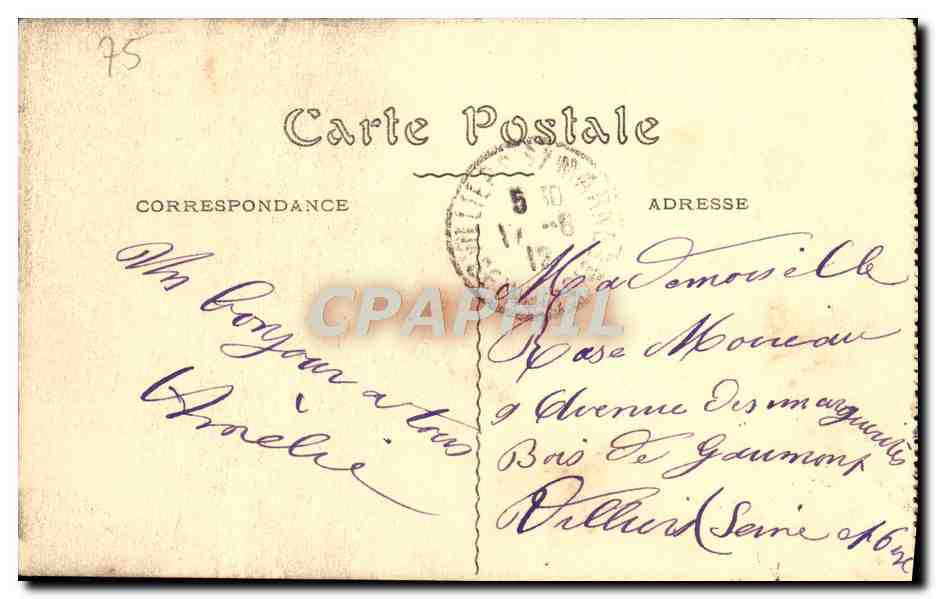 75
Carte Postale
CORRESPONDANCE
ADRESSE
VILLIERS S/ MARNE
5 30
17 -8
CPAPHIL
Un bonjour a tous
Amélie
Mademoiselle
Rose Moreau
9 Avenue des marguerites
Bois de Gaumont
Villiers (Seine et Oise